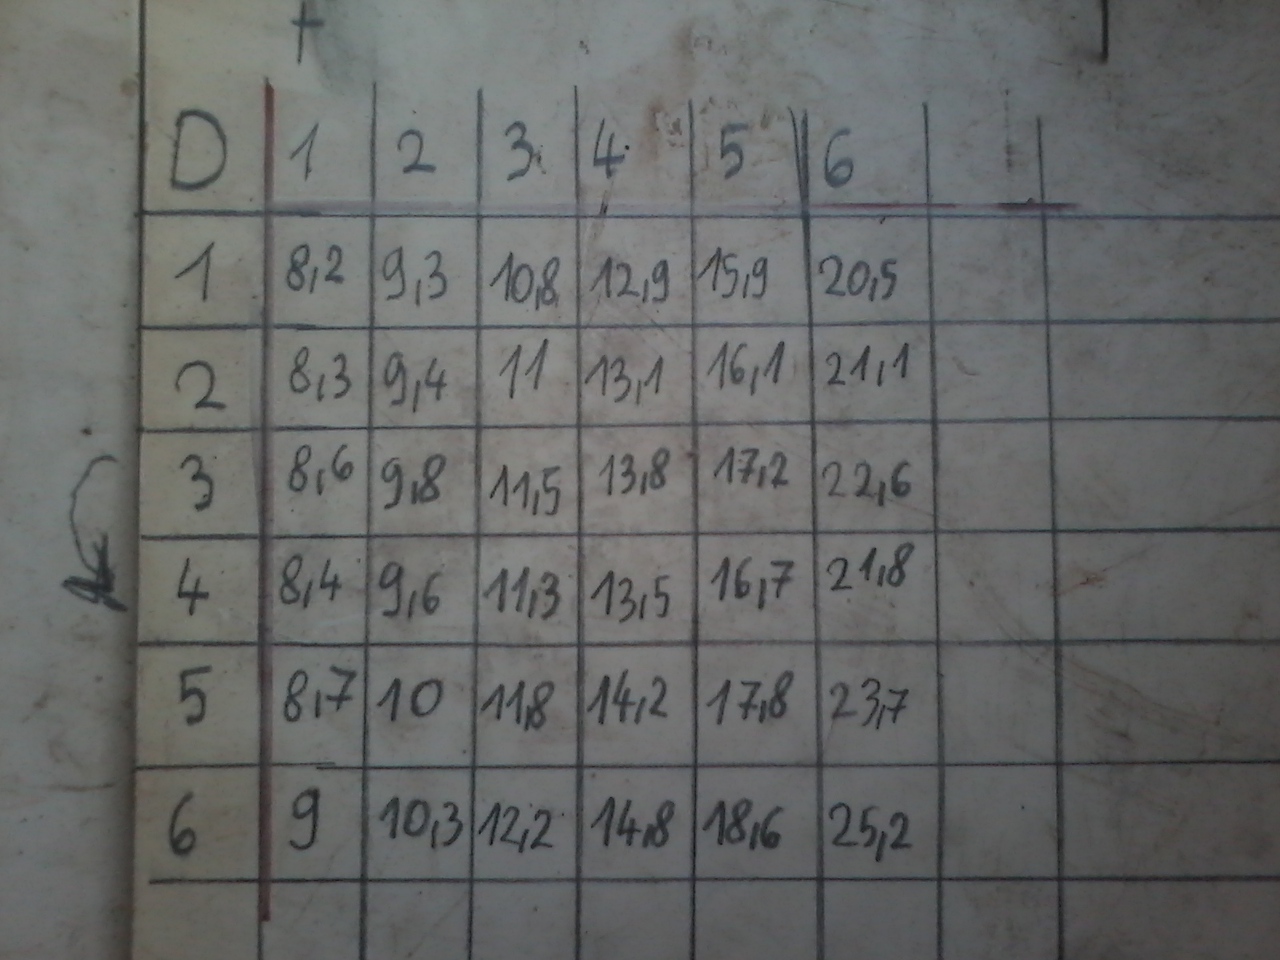 D 1 2 3 4 5 6
1 8,2 9,3 10,8 12,9 15,9 20,5
2 8,3 9,4 11 13,1 16,1 21,1
3 8,6 9,8 11,5 13,8 17,2 22,6
4 8,4 9,6 11,3 13,5 16,7 21,8
5 8,7 10 11,8 14,2 17,8 23,7
6 9 10,3 12,2 14,8 18,6 25,2